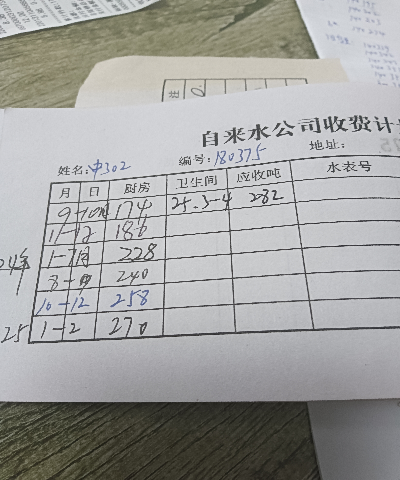 自来水公司收费计
姓名: 中302 编号: 180375 地址:
月 日 厨房 卫生间 应收吨 水表号
9-10月 174 25.3-4 282
11-12 186
24年 1-7月 228
8-9 240
10-12 258
25 1-2 270
注